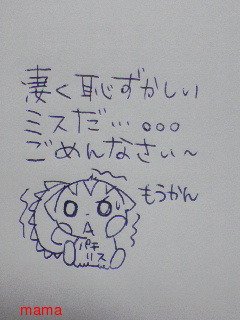 凄く恥ずかしい
ミスだ…。。。
ごめんなさい〜
もうかん
パチ
リス
mama